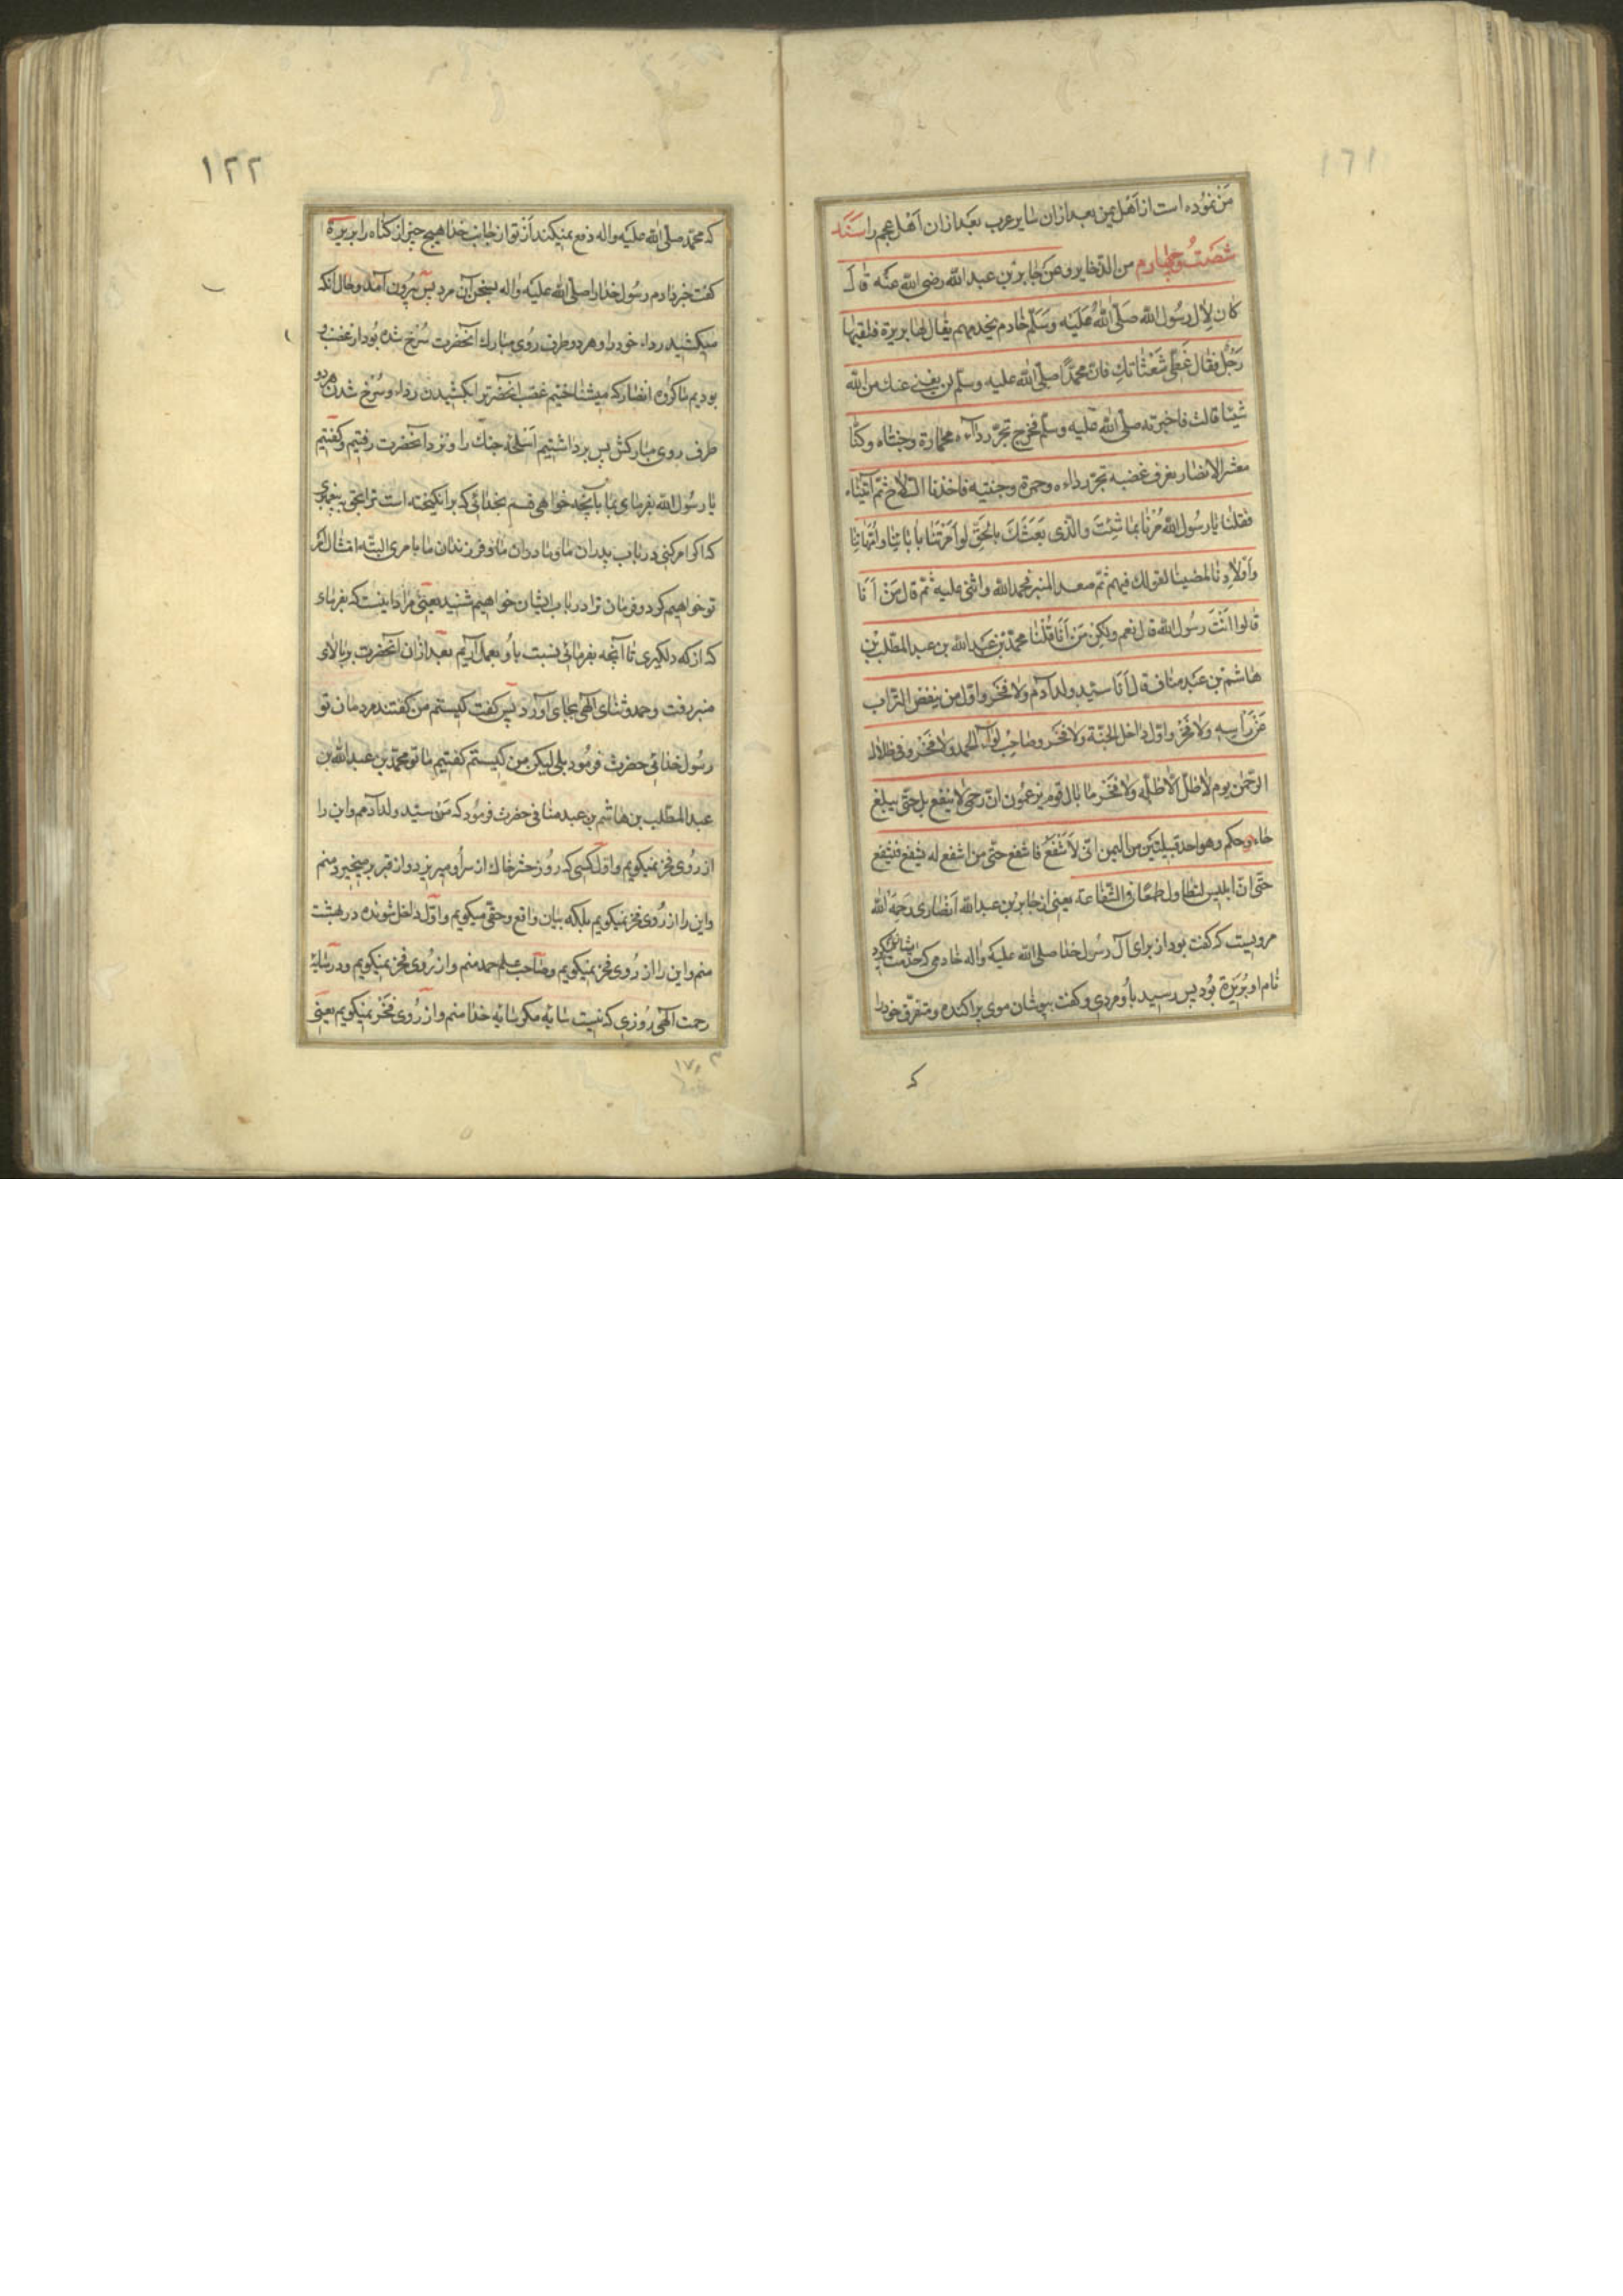 ١٦١
من نموده است از اهل یمن بعد ازان سایر عرب بعد ازان اهل عجم را سند
شصت و چهارم من الذخایر و عن جابر بن عبد الله رضی الله عنه قال
کان لآل رسول الله صلّی الله علیه وسلّم خادم یخدمهم یقال لها بریرة فلقیها
رجل فقال غطّی شعثاتك فانّ محمدًا صلّی الله علیه وسلّم لن یغنی عنك من الله
شیئا قالت فاخبرته صلّی الله علیه وسلّم فخرج تجرّ رداءه محمارة وجنتاه وکنّا
معشر الانصار نعرف غضبه تجرّ رداءه وحمرة وجنتیه فاخذنا السلاح ثمّ اتیناه
فقلنا یا رسول الله مُرنا بما شئت والّذی بعثك بالحقّ لو امرتنا بابائنا وامّهاتنا
واولادنا لمضینا لقولك فیهم ثمّ صعد المنبر فحمد الله واثنی علیه ثمّ قال من انا
قالوا انت رسول الله قال نعم ولکن من انا قلنا محمّد بن عبد الله بن عبد المطّلب بن
هاشم بن عبد مناف قال انا سیّد ولد آدم ولا فخر واوّل من ینفض التراب
عن راسه ولا فخر واوّل داخل الجنّة ولا فخر وصاحب لوآء الحمد ولا فخر وفی ظلال
الرّحمن یوم لا ظلّ الّا ظلّه ولا فخر ما بال قوم یزعمون انّ رحمی لا ینفع بل حتّی یبلغ
حاء وحکم وهو احد قبیلتین من الیمن انّی لاشفع فاشفع حتّی من اشفع له فیشفع فیشفع
حتّی انّ ابلیس لیتطاول طمعًا فی الشّفاعة یعنی از جابر بن عبد الله انصاری رحمه الله
مرویست که گفت بود از برای آل رسول خدا صلّی الله علیه واله خادمی که خدمت ایشان میکرد
نام او بریرة بود پس رسید باو مردی و گفت بپوشان موی پراکنده و متفرّق خود را
که
١٢٢
که محمّد صلّی الله علیه واله دفع نمیکند از تو از جانب خدا هیچ چیز از گناه را بریرة
گفت خبر دادم رسول خدا را صلّی الله علیه واله بسخن آن مرد پس بیرون آمد و حال آنکه
میکشید رداء خود را و هر دو طرف روی مبارك آنحضرت سُرخ شده بود از غضب و
بودیم ما گروه انصار که میشناختیم غضب آنحضرت را بکشیدن رداء و سُرخ شدن هر دو
طرف روی مبارکش پس برداشتیم اسلحه جنك را و نزد آنحضرت رفتیم و گفتیم
یا رسول الله بفرمای بما بآنچه خواهی قسم بخدائی که برانکیخته است ترا بحق به پیغمبری
که اکر امر کنی در باب پدران ما و مادران ما و فرزندان ما بامری البتّه امتثال امر
تو خواهیم کرد و فرمان ترا در باب ایشان خواهیم شنید یعنی مراد اینست که بفرمای
که از که دلکیری تا آنچه بفرمائی نسبت باو بعمل آریم بعد ازان آنحضرت بر بالای
منبر رفت و حمد و ثنای الهی بجای آورد پس گفت کیستم من گفتند مردمان تو
رسول خدائی حضرت فرمود بلی لیکن من کیستم گفتیم ما تو محمّد بن عبد الله بن
عبد المطّلب بن هاشم بن عبد منافی حضرت فرمود که من سیّد ولد آدمم و این را
از روی فخر نمیکویم و اوّل کسی که روز حشر خاك از سر او میریزد و از قبر برمیخیزد منم
و این را از روی فخر نمیکویم بلکه بیان واقع و حقّی میکویم و اوّل داخل شونده در بهشت
منم و این را از روی فخر نمیکویم و صاحب علم حمد منم و از روی فخر نمیکویم و در سایه
رحمت الهی روزی که نیست سایه مکر سایه خدا منم و از روی فخر نمیکویم یعنی